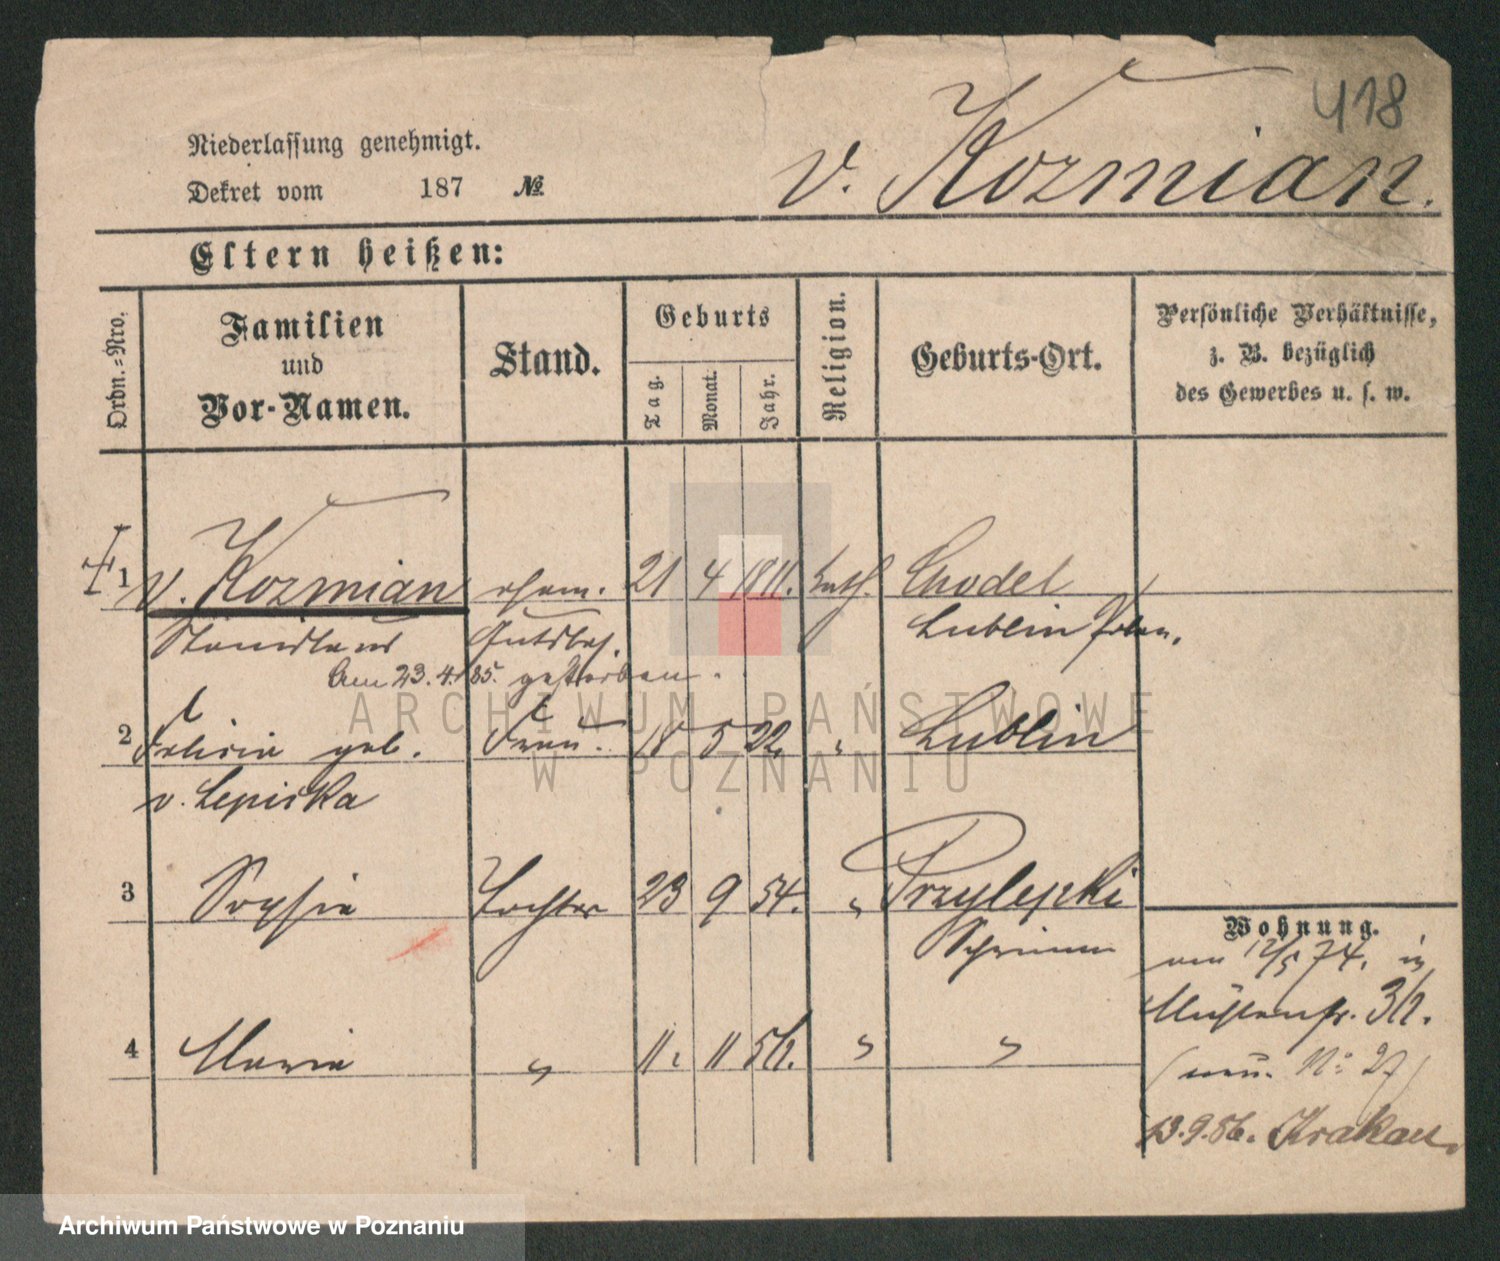 418
Niederlassung genehmigt.
Dekret vom 187 №
v. Kozmian.
Eltern heißen:
Ordn.=Nro.
Familien
und
Vor-Namen.
Stand.
Geburts
Tag.
Monat.
Jahr.
Religion.
Geburts-Ort.
Persönliche Verhältnisse,
z. B. bezüglich
des Gewerbes u. s. w.
1 v. Kozmian ehem. 21 4 1811. kath. Chodel
Stanislaus Gutsbes. Lublin Polen.
Am 23.4.85. gestorben.
2 Felicia geb. Frau. 18 5 22. " Lublin
v. Lepiska
3 Sophie Tochter 23 9 54. " Przylepki
Schrimm
4 Maria " 11. 11 " "
Wohnung.
12/5 74. in
Mühlenstr.
(neu. No: 27)
13.9.86. Krakau.
ARCHIWUM PAŃSTWOWE
W POZNANIU
Archiwum Państwowe w Poznaniu